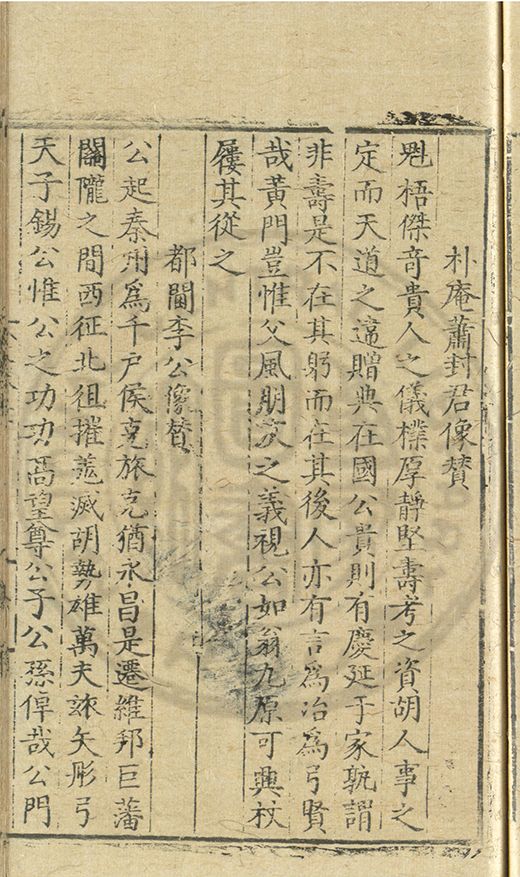 朴庵蕭封君像贊
魁梧傑竒貴人之儀樸厚靜堅壽考之資胡人事之
定而天道之違贈典在國公貴則有慶延于家孰謂
非壽是不在其躬而在其後人亦有言為冶為弓賢
哉黃門豈惟父風朋友之義視公如翁九原可興杖
屨其從之
都閫李公像贊
公起秦州為千戶侯克旅克猶永昌是遷維邦巨藩
關隴之間西征北徂摧羗滅胡勢雄萬夫玈矢彤弓
天子錫公惟公之功功高望尊公子公孫俾哉公門